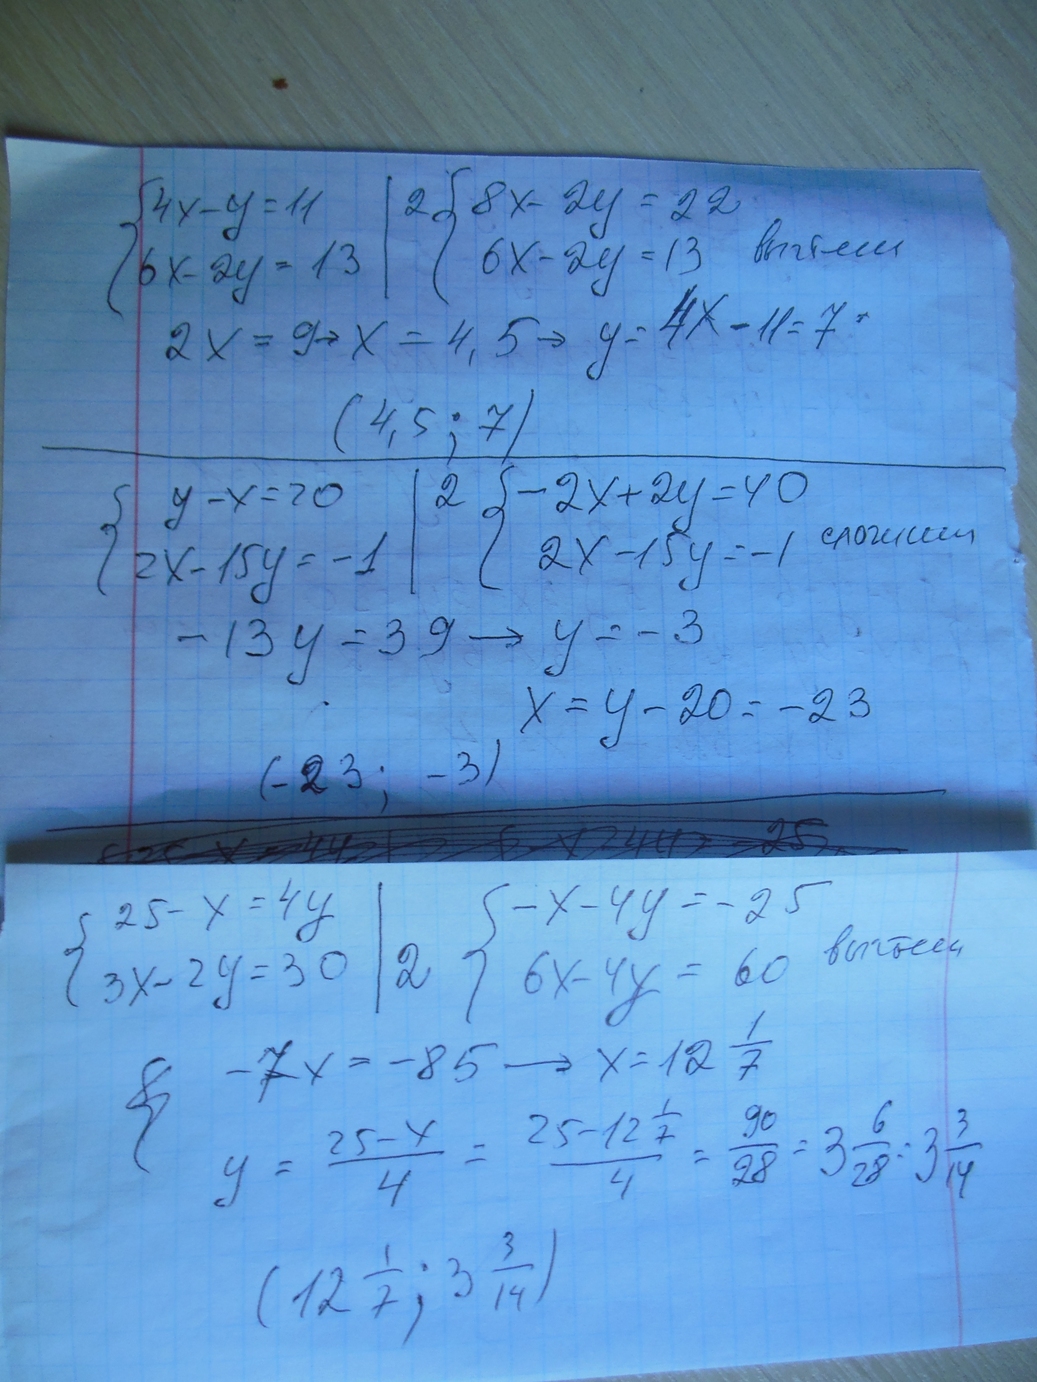 {4x-y=11 |2 {8x-2y=22
{6x-2y=13 | {6x-2y=13 вычтем
2x=9→x=4,5→y=4x-11=7
(4,5; 7)
{y-x=20 |2 {-2x+2y=40
{2x-15y=-1 | {2x-15y=-1 сложим
-13y=39→y=-3
x=y-20=-23
(-23; -3)
{25-x=4y | {-x-4y=-25
{3x-2y=30 |2 {6x-4y=60 вычтем
{-7x=-85→x=12 1/7
y=(25-x)/4=(25-12 1/7)/4=90/28=3 6/28=3 3/14
(12 1/7; 3 3/14)